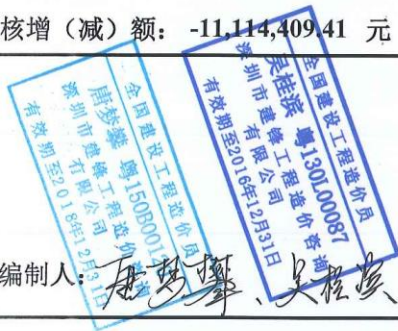 核增（减）额： -11,114,409.41 元
全国建设工程造价员
唐梦攀 粤150B001
深圳市建锋工程造价咨询
有限公司
有效期至2018年12月31日
全国建设工程造价员
吴桂滨 粤130L00087
深圳市建锋工程造价咨询
有限公司
有效期至2016年12月31日
编制人：唐梦攀、吴桂滨